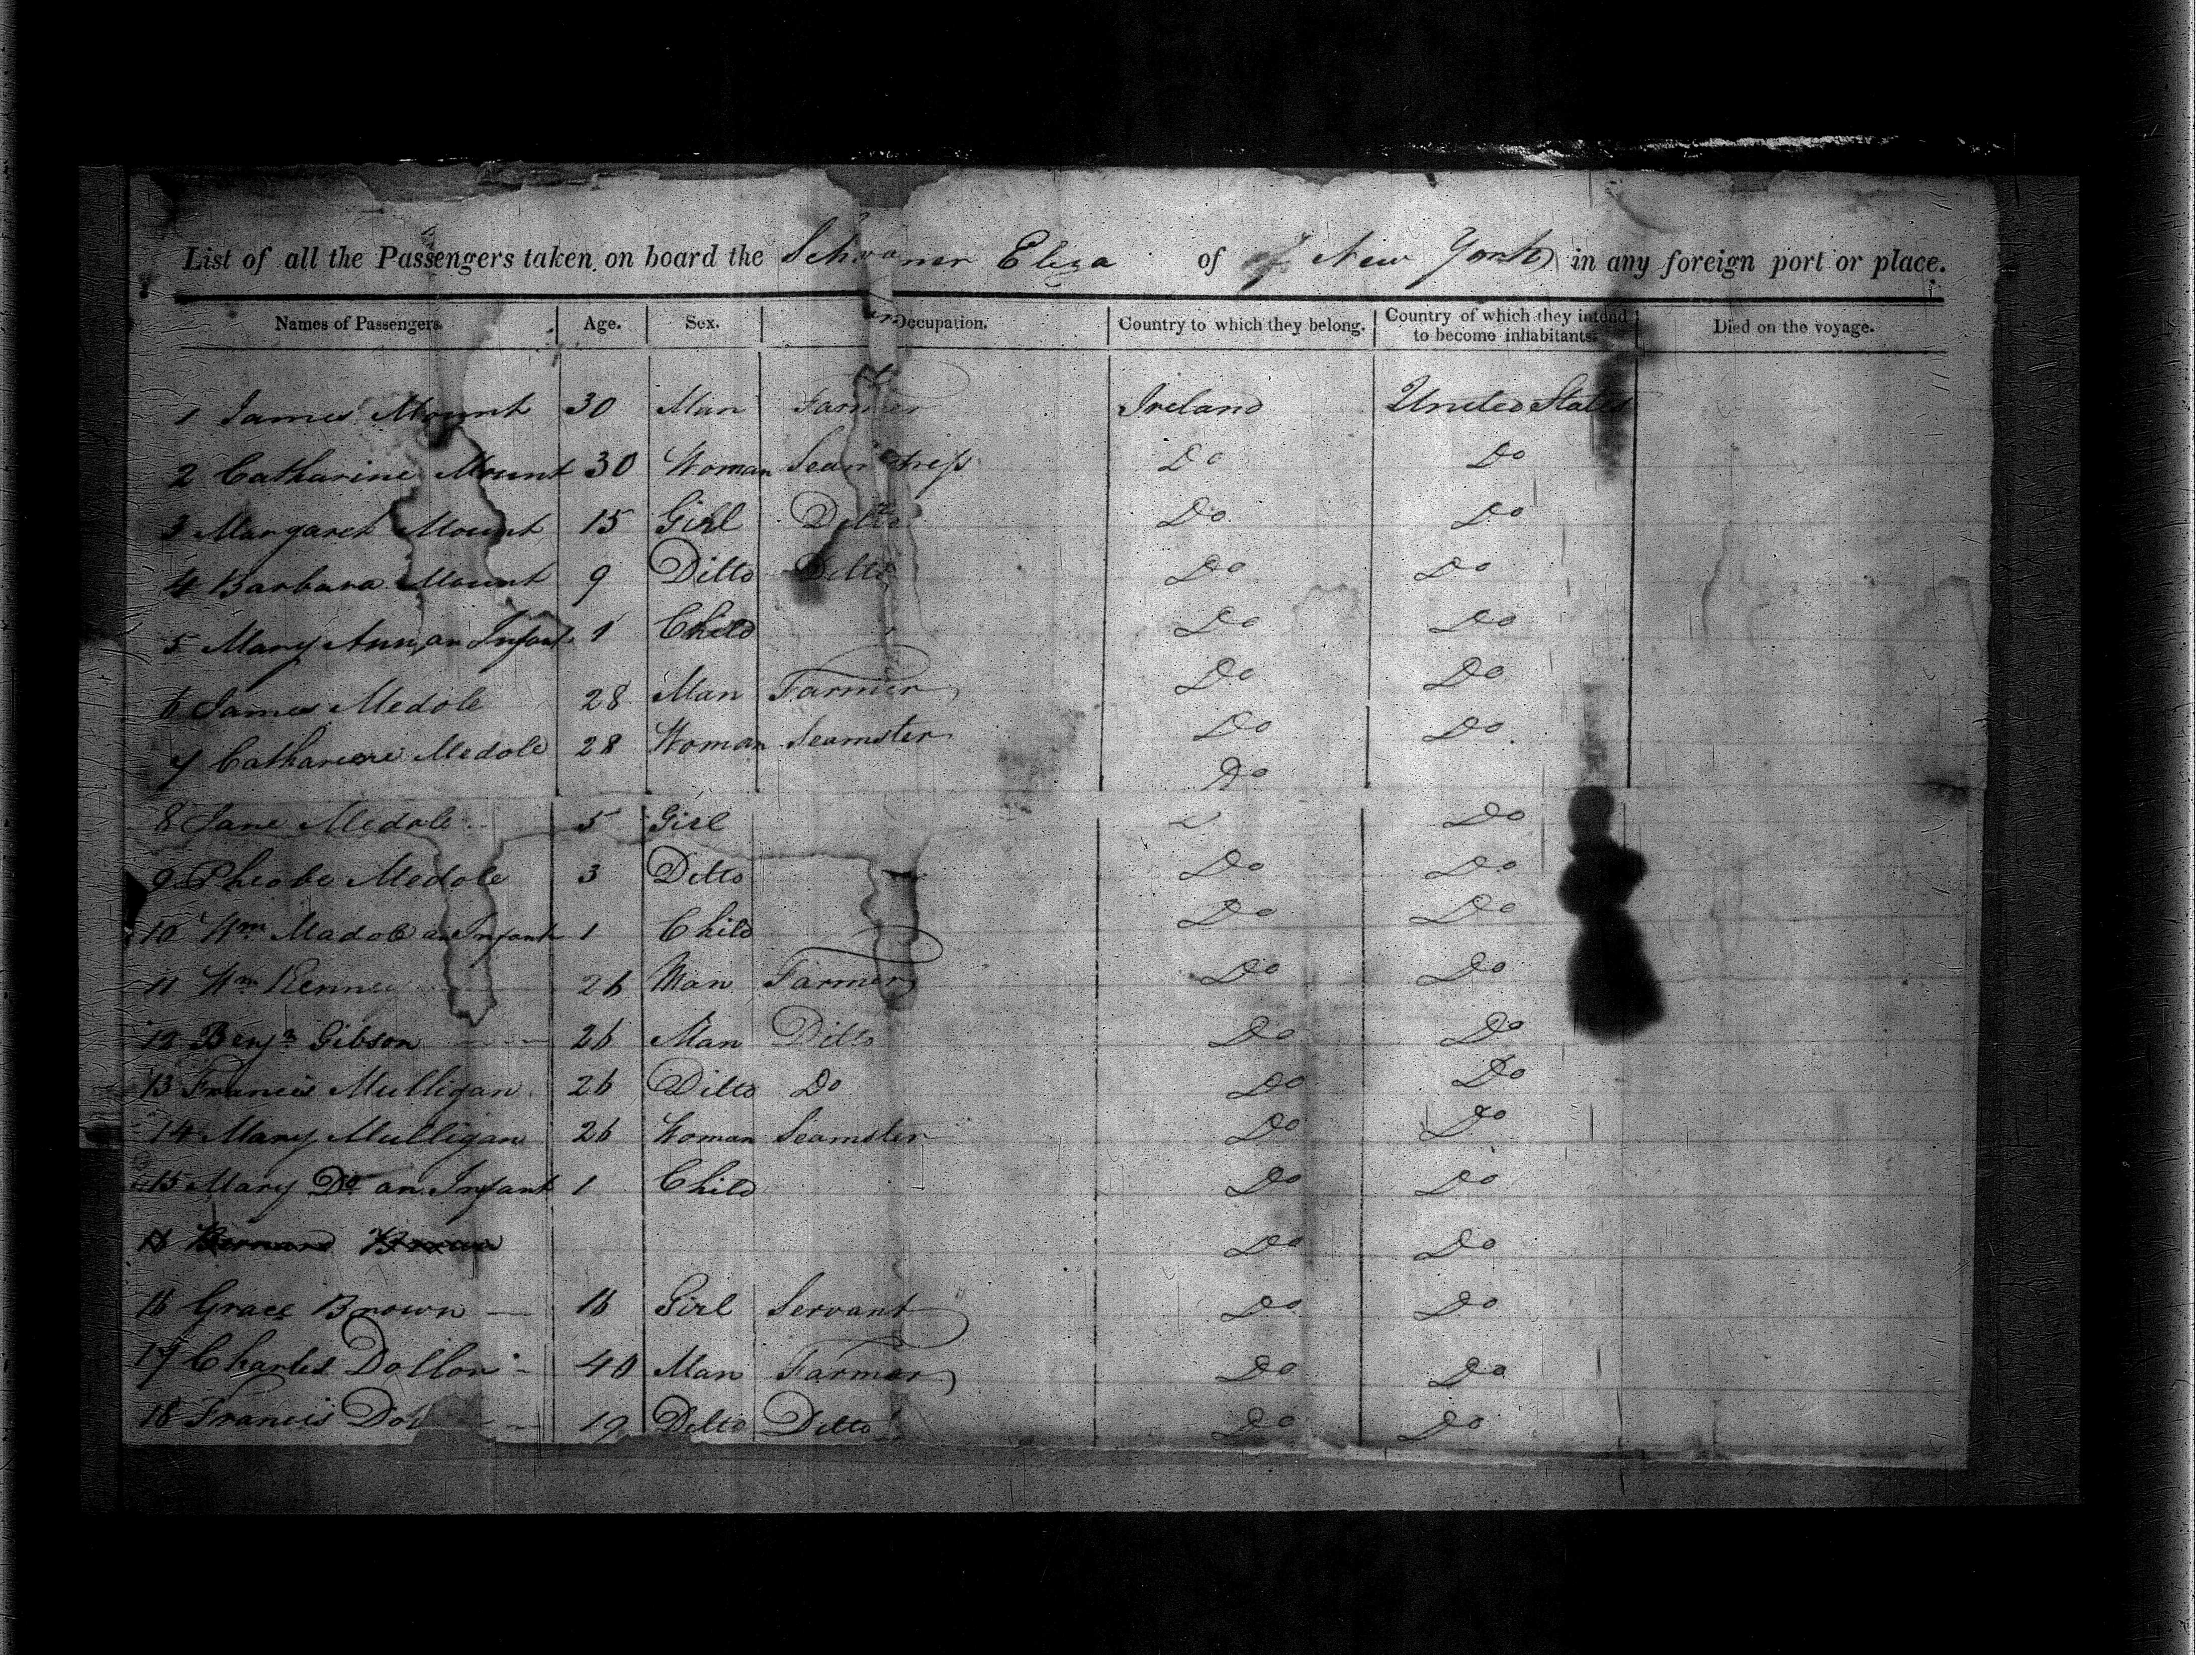 List of all the Passengers taken on board the Schooner Eliza of of New York in any foreign port or place.
Names of Passengers. Age. Sex. Occupation. Country to which they belong. Country of which they intend to become inhabitants. Died on the voyage.
1 James Mount 30 Man Farmer Ireland United States
2 Catharine Mount 30 Woman Seamstress Do Do
3 Margaret Mount 15 Girl Ditto Do Do
4 Barbara Mount 9 Ditto Ditto Do Do
5 Mary Ann, an Infant 1 Child Do Do
6 James Medole 28 Man Farmer Do Do
7 Catharine Medole 28 Woman Seamster Do Do
Do
8 Jane Medole 5 Girl Do
9 Pheobe Medole 3 Ditto Do Do
10 Wm Madole an Infant 1 Child Do Do
11 Wm 26 Man Farmer Do Do
12 Benjn Gibson 26 Man Ditto Do Do
13 Francis Mulligan 26 Ditto Do Do Do
14 Mary Mulligan 26 Woman Seamster Do Do
15 Mary Do an Infant 1 Child Do Do
Do Do
16 Grace Brown 16 Girl Servant Do Do
17 Charles Dollon 40 Man Farmer Do Do
18 Francis 19 Ditto Ditto Do Do